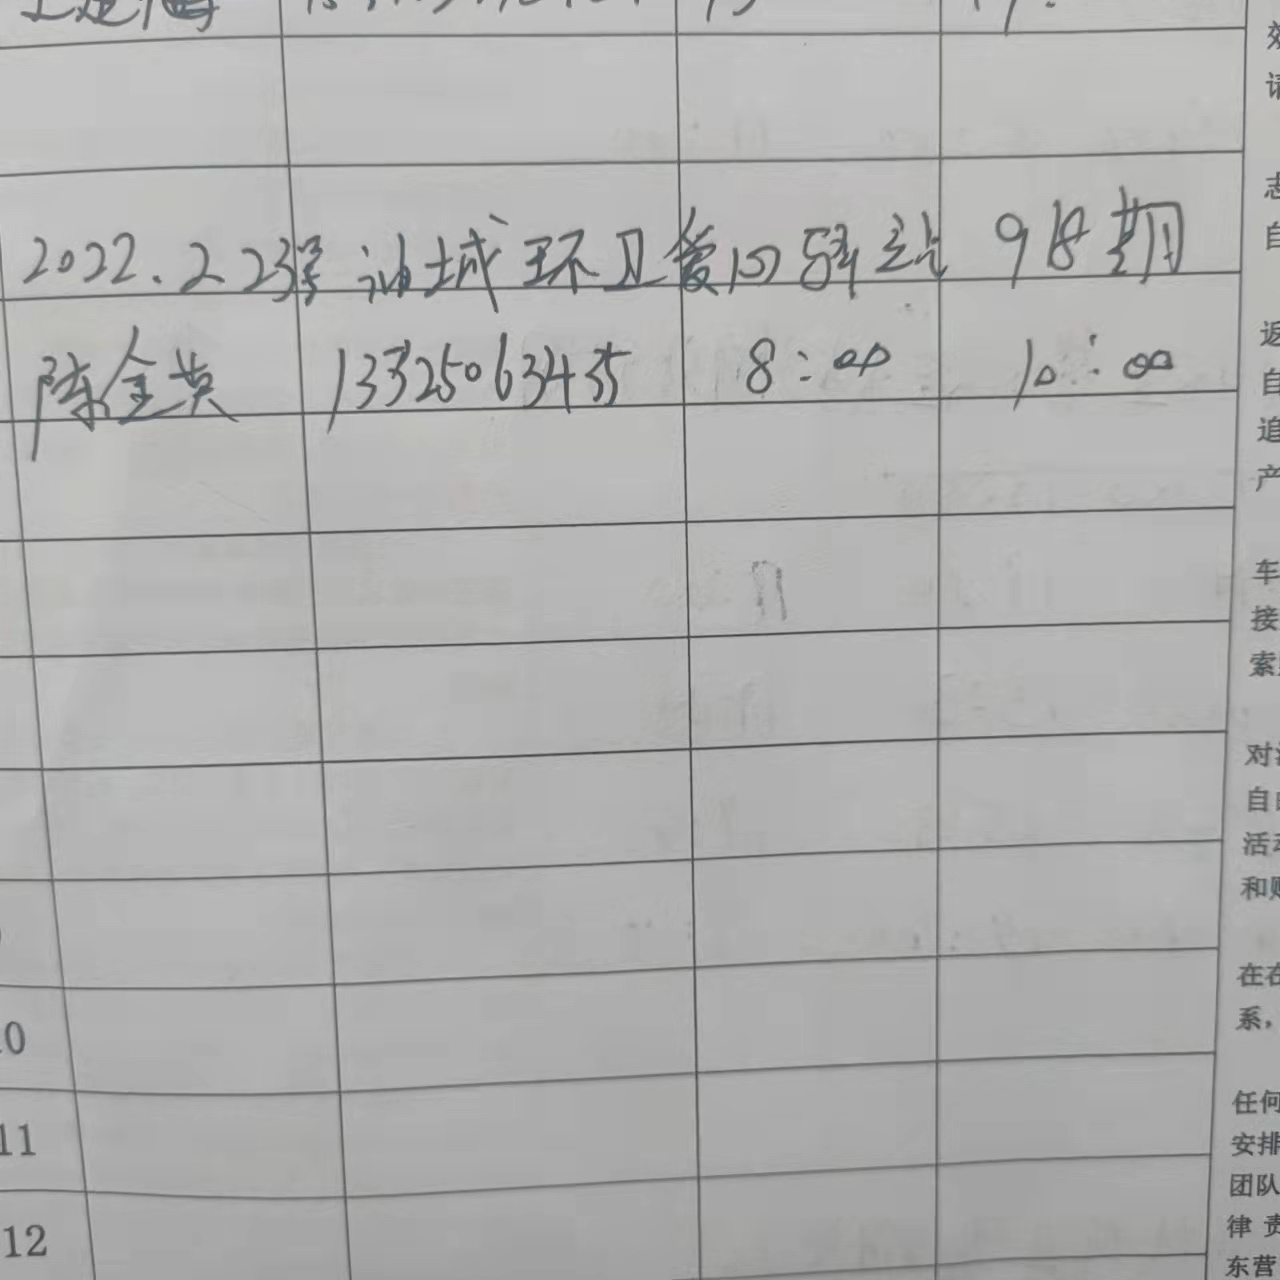 2022.2.23号 油城环卫爱心驿站 98期
陈金英 13325063435 8:00 10:00
10
11
12
效
请
志
自
返
自
追
产
车
接
索
对
自由
活动
和
在在
系，
任何
安排
团队
律 责
东营